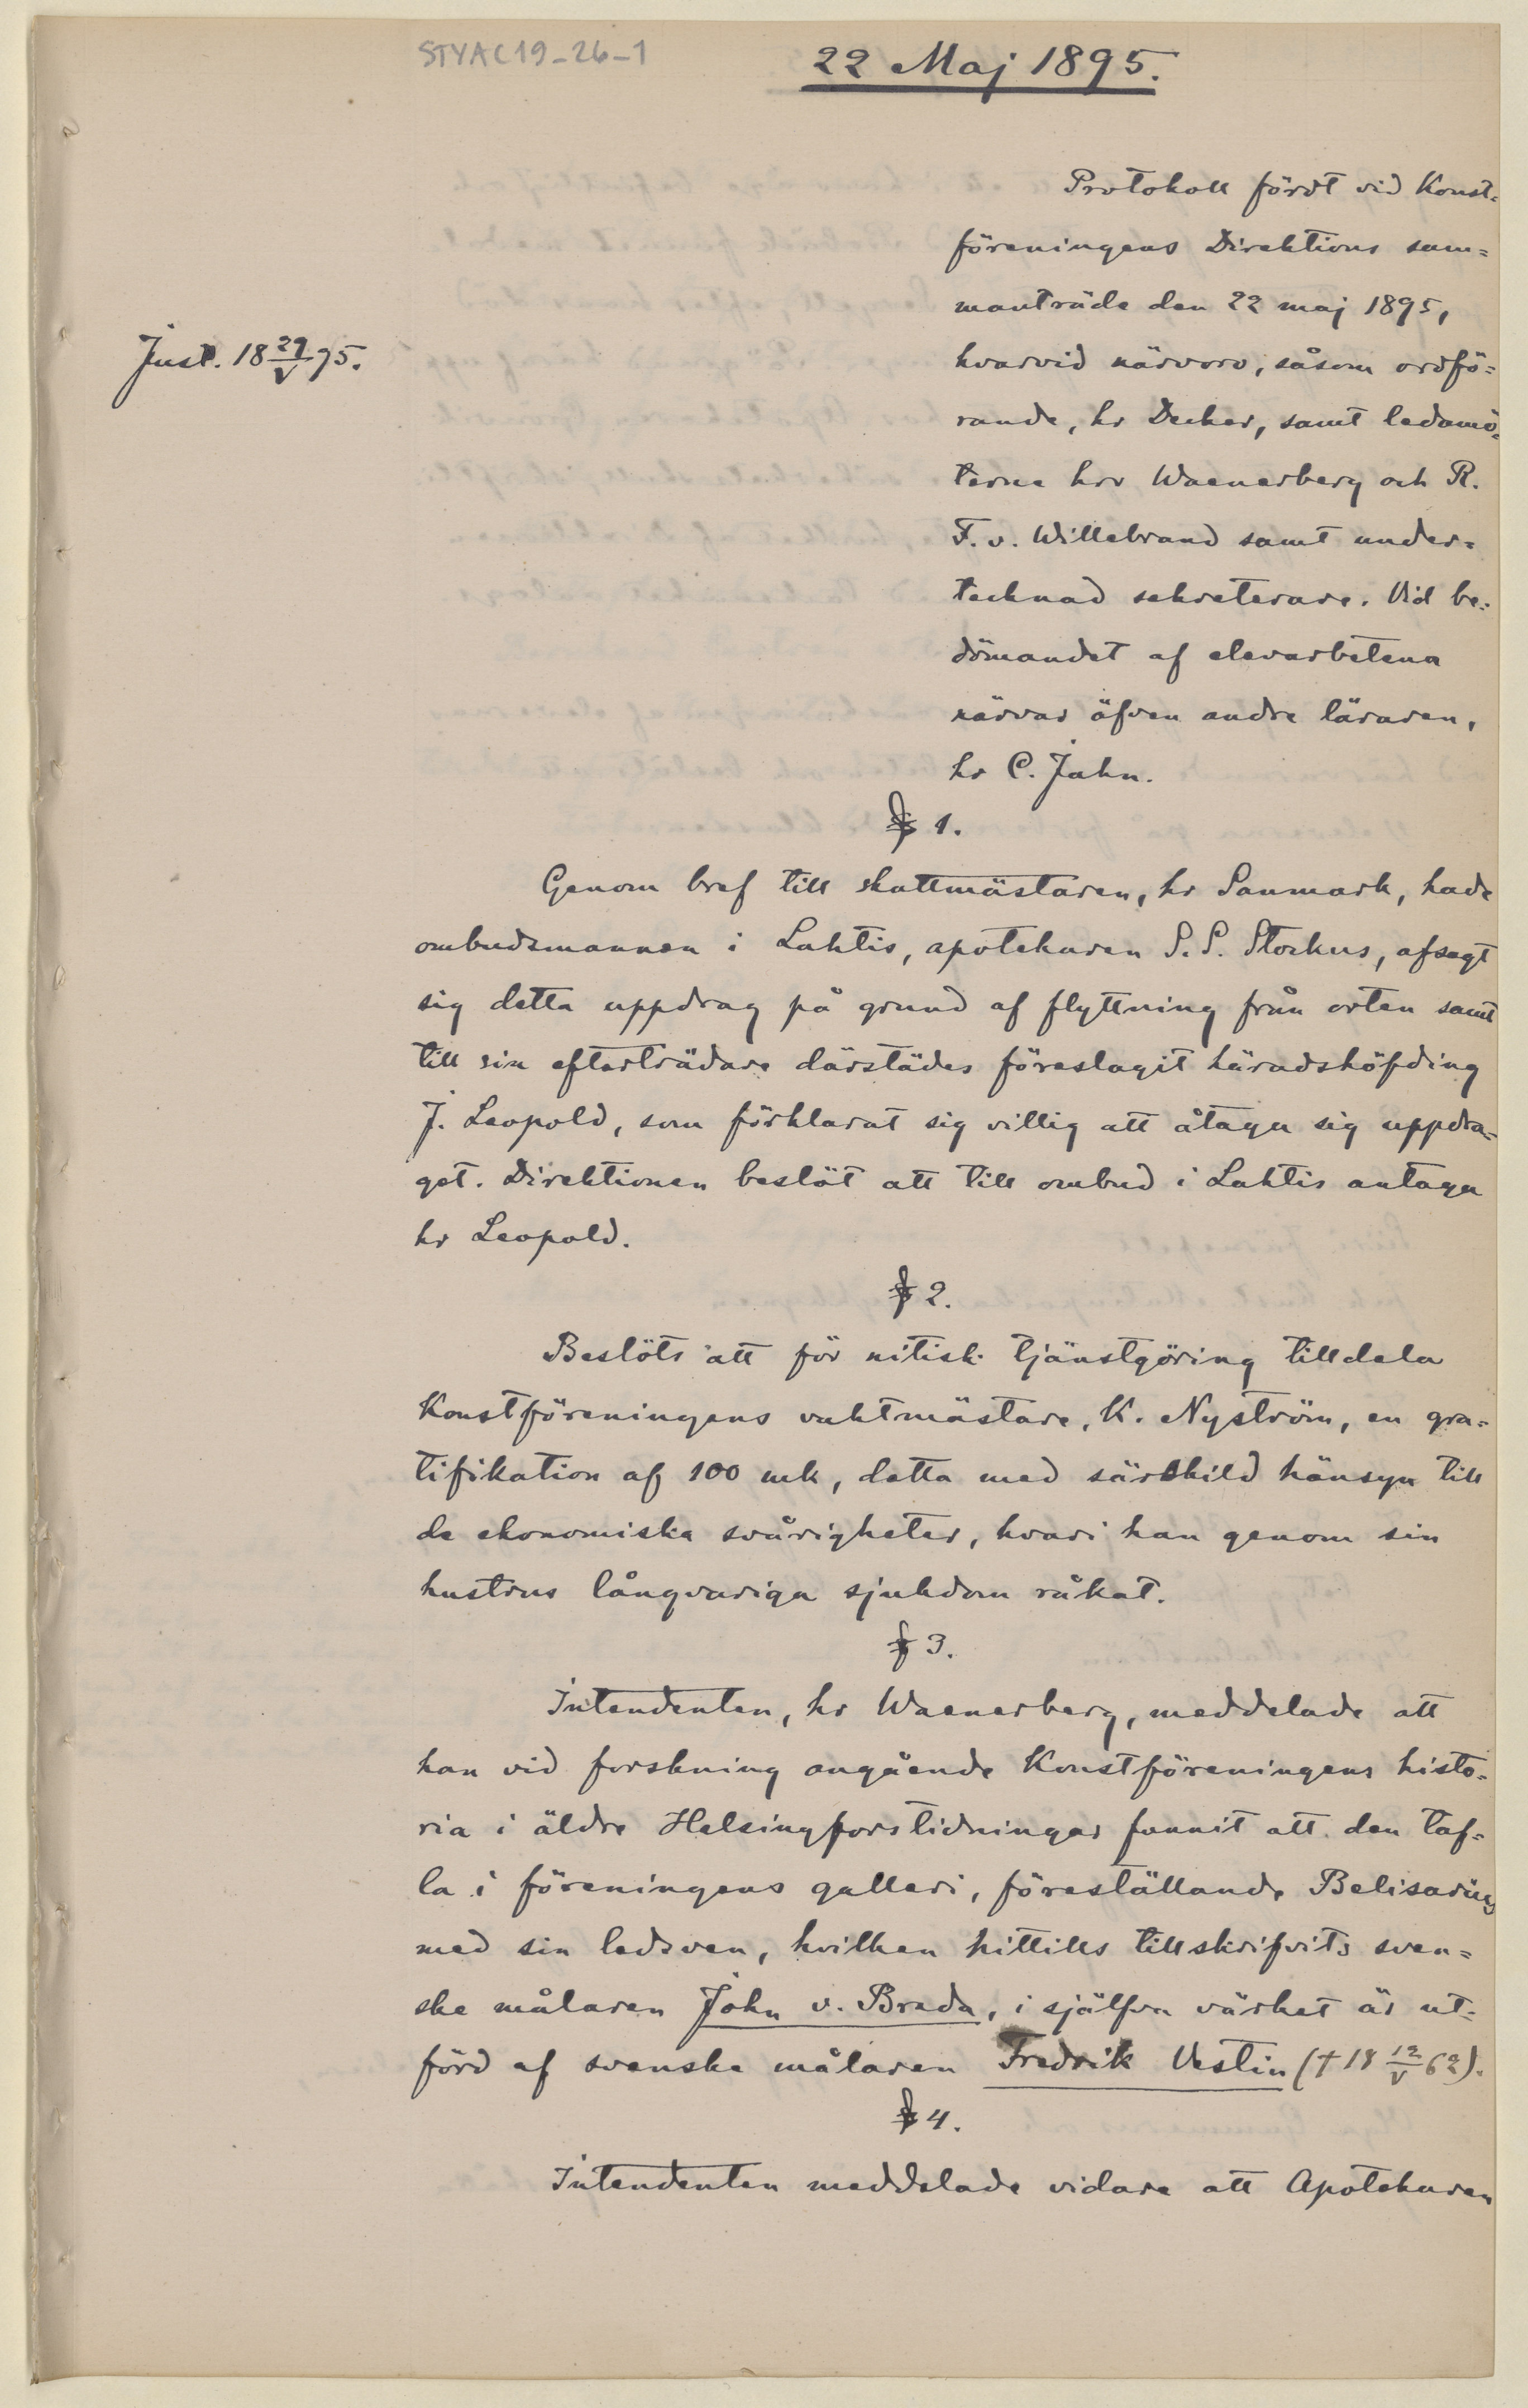 STYAC19-26-1
22 Maj 1895.
Protokoll fördt vid Konst=
föreningens Direktions sam=
manträde den 22 maj 1895,
Just. 18 29/V 95.
hvarvid närvoro, såsom ordfö=
rande, hr Decker, samt ledamö=
terne hrr Waenerberg och R.
F. v. Willebrand samt under=
tecknad sekreterare. Vid be=
dömandet af elevarbetena
närvar äfven andre läraren,
hr C. Jahn.
§ 1.
Genom bref till skattmästaren, hr Sanmark, hade
ombudsmannen i Lahtis, apotekaren S. S. Storkus, afsagt
sig detta uppdrag på grund af flyttning från orten samt
till sin efterträdare därstädes föreslagit häradshöfding
J. Leopold, som förklarat sig villig att åtaga sig uppdra=
get. Direktionen beslöt att till ombud i Lahtis antaga
hr Leopold.
§ 2.
Beslöts att för nitisk tjänstgöring tilldela
Konstföreningens vaktmästare, K. Nyström, en gra=
tifikation af 100 mk, detta med särskild hänsyn till
de ekonomiska svårigheter, hvari han genom sin
hustrus långvariga sjukdom råkat.
§ 3.
Intendenten, hr Waenerberg, meddelade att
han vid forskning angående Konstföreningens histo=
ria i äldre Helsingforstidningar funnit att den taf=
la i föreningens galleri, föreställande Belisarius
med sin ledsven, hvilken hittills tillskrifvits sven=
ske målaren John v. Breda, i själfva värket är ut=
förd af svenske målaren Fredrik Vestin († 18 12/V 62).
§ 4.
Intendenten meddelade vidare att Apotekaren